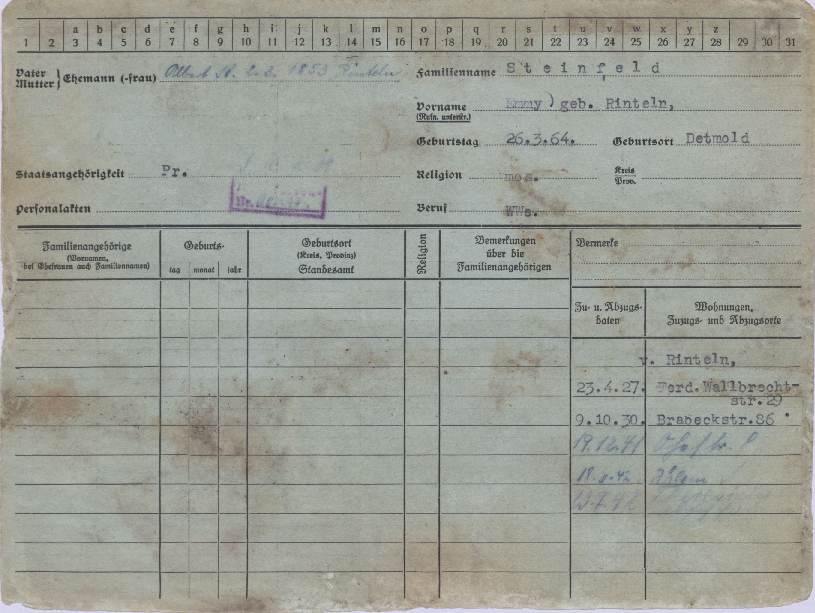 a b c d e f g h i j k l m n o p q r s t u v w x y z
1 2 3 4 5 6 7 8 9 10 11 12 13 14 15 16 17 18 19 20 21 22 23 24 25 26 27 28 29 30 31
Vater
Mutter } Ehemann (-frau) 1853 Rinteln
Familienname Steinfeld
Vorname Emmy) geb. Rinteln,
(Rufn. unterstr.)
Geburtstag 26.3.64. Geburtsort Detmold
Staatsangehörigkeit Pr.
Religion mos.
Kreis
Prov.
Personalakten
Beruf WWe.
Familienangehörige
(Vornamen,
bei Ehefrauen auch Familiennamen)
Geburts-
tag monat jahr
Geburtsort
(Kreis, Provinz)
Standesamt
Religion
Bemerkungen
über die
Familienangehörigen
Vermerke
Zu- u. Abzugs-
daten
Wohnungen,
Zuzugs- und Abzugsorte
v. Rinteln,
23.4.27. Ferd.Wallbrecht-
str.29
9.10.30. Brabeckstr.86
19.12.41
Ahlem